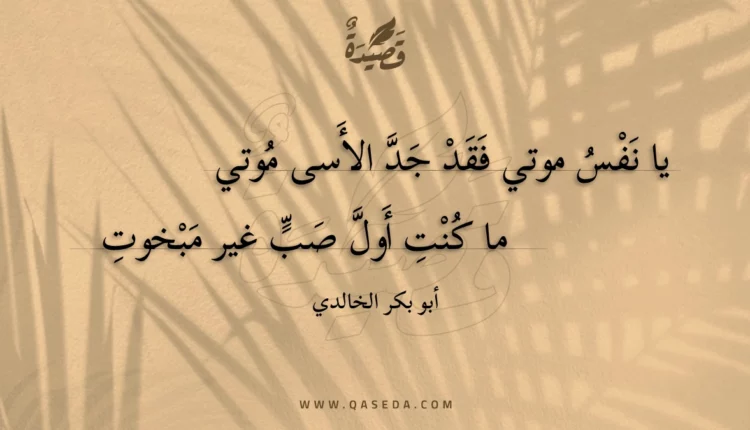 قَصِيْدَةٌ
يا نَفْسُ موتي فَقَدْ جَدَّ الأَسى مُوتي
ما كُنْتِ أَولَّ صَبٍّ غير مَبْخوتِ
أبو بكر الخالدي
WWW.QASEDA.COM